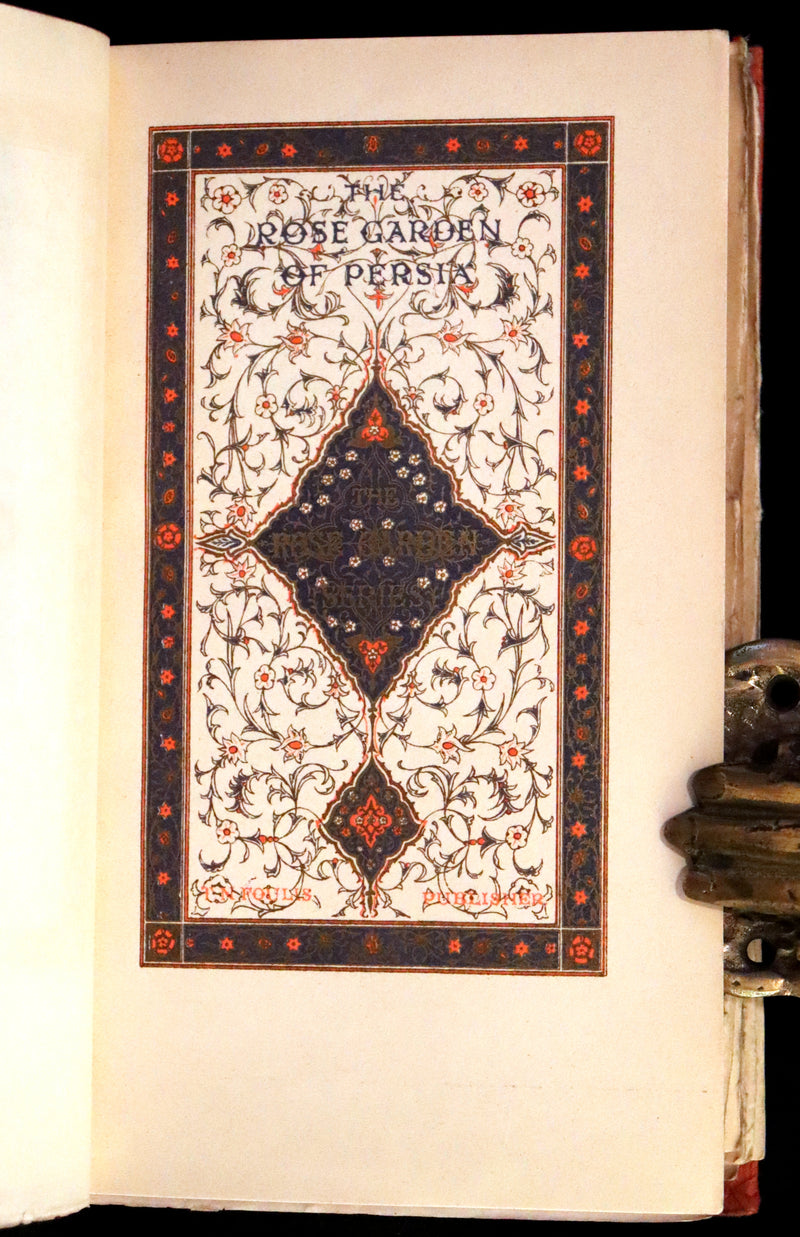 THE
ROSE GARDEN
OF PERSIA
THE
ROSE GARDEN
SERIES
T. N. FOULIS
PUBLISHER